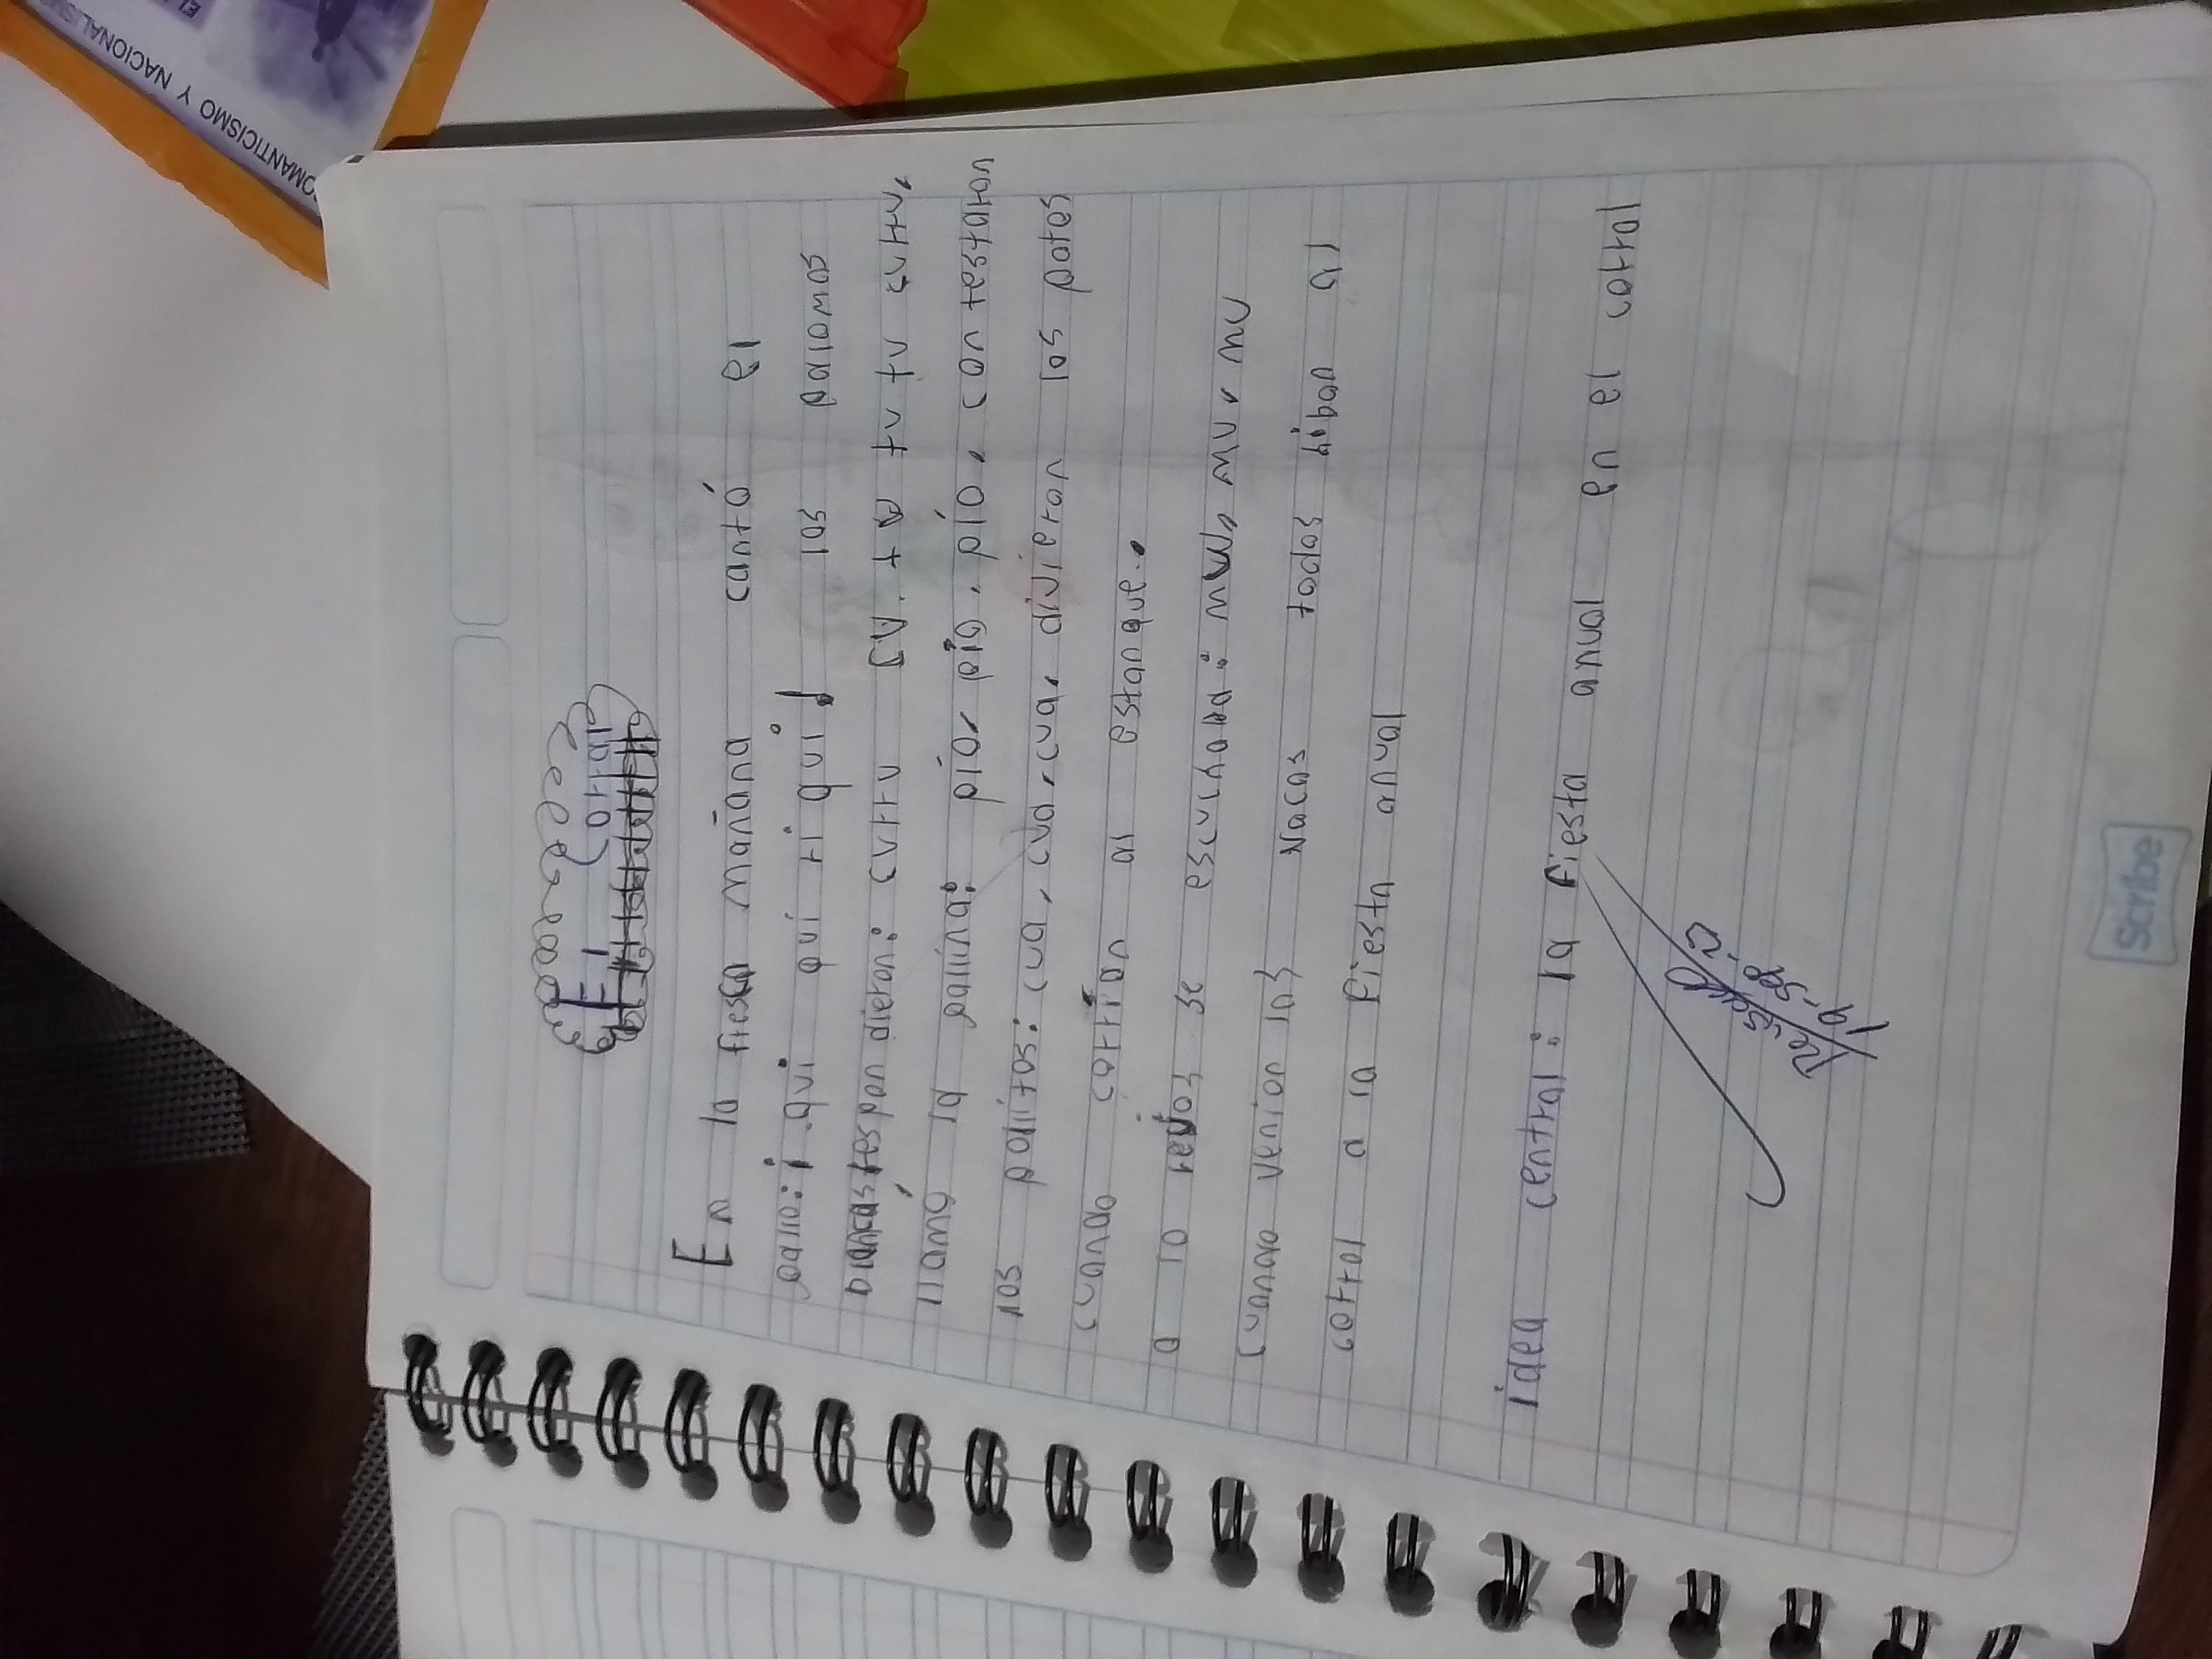 El corral
En la fresca mañana cantó el
gallo: ¡.qui qui ri qui! los palomas
blancas respondieron: curru cu. tu tu curru.
llamó la gallina: pío, pío, pío, pío, contestaron
los pollitos: cua, cua, cua, divieron los patos
cuando corrían al estanque.
a lo lejos se escuchaba: mu, mu, mu
cuando venion las vacas todos iban al
corral a la fiesta anual
idea central: la fiesta anual en el corral
Scribe
ROMANTICISMO Y NACIONALIS